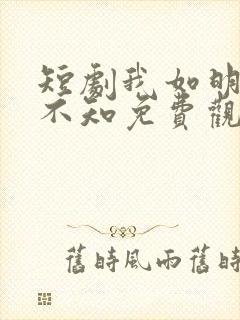 短劇我如明
不知免費觀
舊時風雨舊時